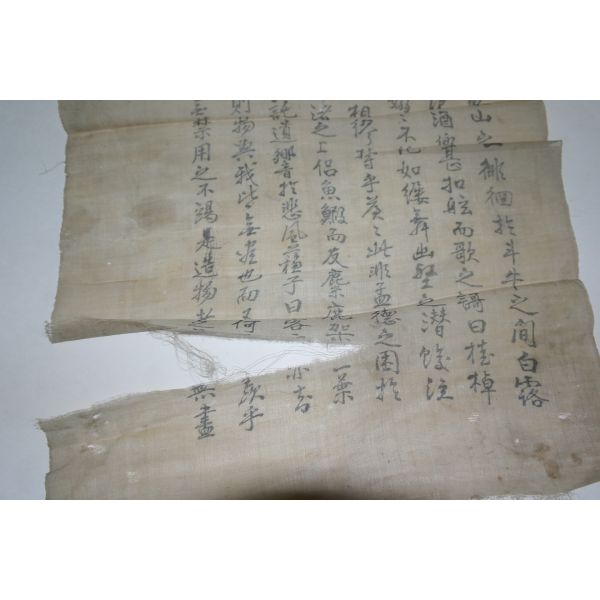 山之上徘徊於斗牛之間白露
酒樂甚扣舷而歌之謌曰桂棹
嫋不絕如縷舞幽壑之潛蛟泣
相繆孚蒼此非孟德之困於
渚之上侶魚鰕而友麋鹿駕一葉
託遺響於悲風蘓子曰客亦知
則物與我皆無盡也而又何羨乎
禁用之不竭是造物者無盡